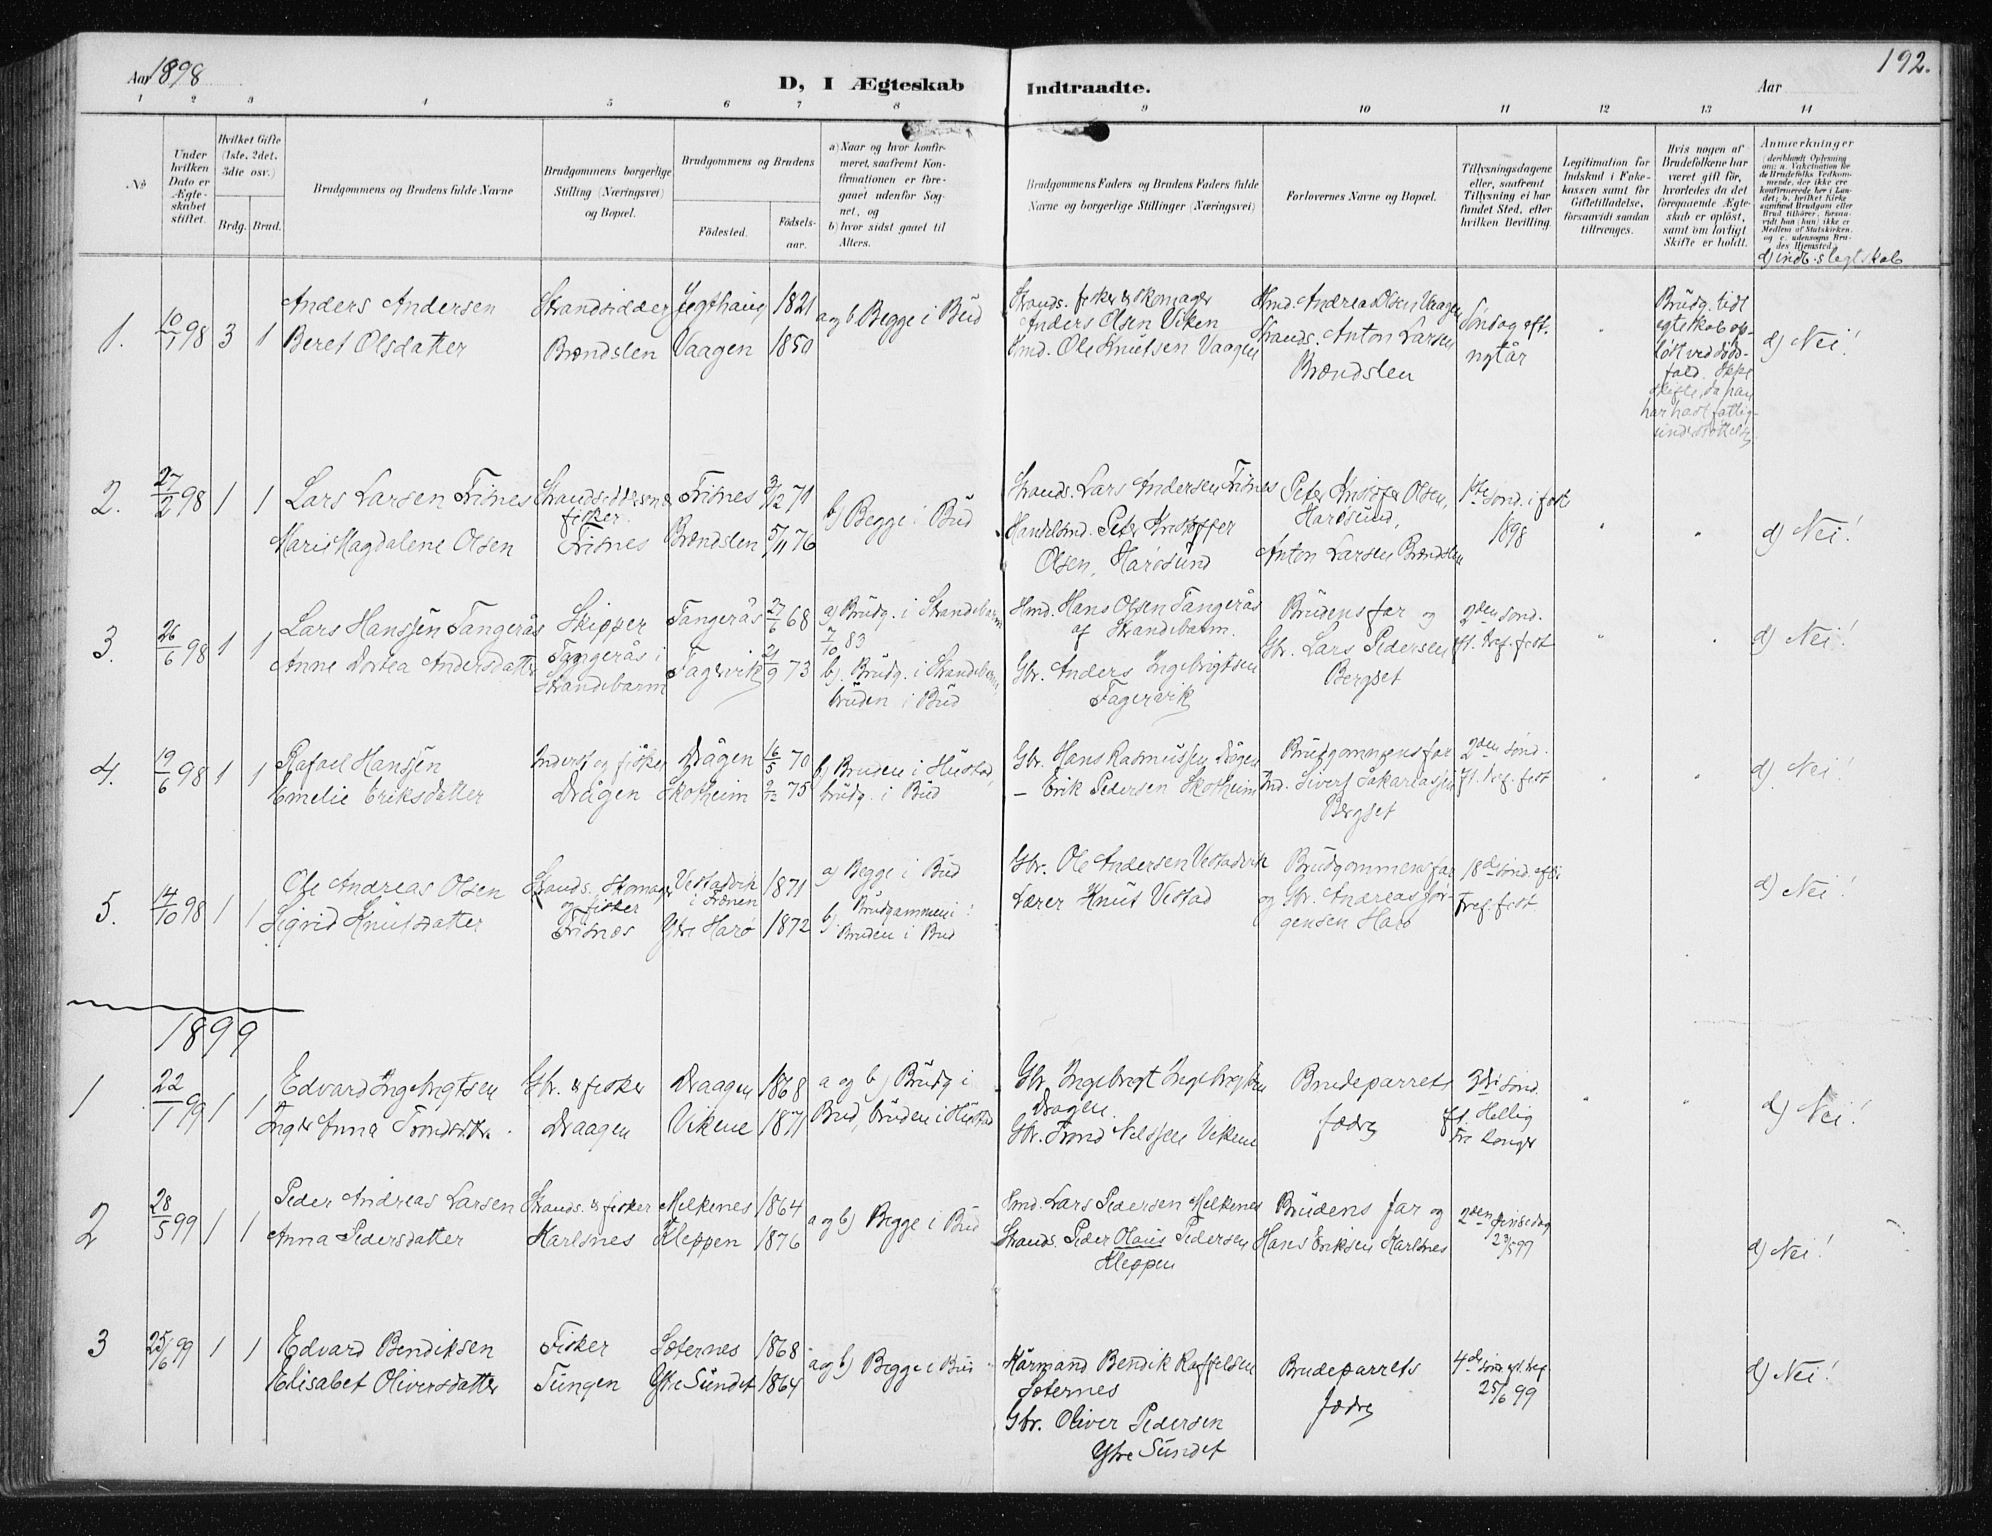 Aar 1898
D, I Ægteskab Indtraadte.
Aar
192.
1 2 3 4 5 6 7 8 9 10 11 12 13 14
No
Under hvilken Dato er Ægteskabet stiftet.
Hvilket Gifte (1ste, 2det, 3die osv.)
Brdg. Brud.
Brudgommens og Brudens fulde Navne
Brudgommens borgerlige Stilling (Næringsvei) og Bopæl.
Brudgommens og Brudens
Fødested.
Fødselsaar.
a) Naar og hvor konfirmeret, saafremt Konfirmationen er foregaaet udenfor Sognet, og
b) hvor sidst gaaet til Alters.
Brudgommens Faders og Brudens Faders fulde Navne og borgerlige Stillinger (Næringsvei)
Forlovernes Navne og Bopæl.
Tillysningsdagene eller, saafremt Tillysning ei har fundet Sted, efter hvilken Bevilling.
Legitimation for Indskud i Enkekassen samt for Giftetilladelse, forsaavidt saadan tiltrænges.
Hvis nogen af Brudefolkene har været gift før, hvorledes da det foregaaende Ægteskab er opløst, samt om lovligt Skifte er holdt.
Anmærkninger
(deriblandt Oplysning om: a. Vakcination for de Brudefolks Vedkommende, der ikke ere konfirmerede her i Landet; b. hvilket Kirkesamfund Brudgom eller Brud tilhører, forsaavidt han (hun) ikke er Medlem af Statskirken, og c. udensogns Brudes Hjemsted.)
d) indb. slegtskab
1. 10/1 98 3 1
Anders Andersen
Beret Olsdatter
Strandsidder
Brændslen
Jegthaug 1821
Vaagen 1850
a og b. Begge i Bud
Strands. fisker & skomager
Anders Olsen Viken
Gmd. Ole Knutsen Vaagen
Gmd. Andreas Olsen Vaagen
Strands. Anton Larsen
Brændslen
Søndag eft.
nytår
Brudg. tidl
egteskab op-
løst ved døds-
fald. Ikke
skifte, da han
har hadt fattig-
understøttelse
d) Nei!
2. 27/2 98 1 1
Lars Larsen Frisnes
Marie Magdalene Olsen
fisker
Frisnes
Frisnes 3/12 71
Brændslen 5/11 76
b) Begge i Bud
Strands. Lars Andersen Frisnes
Handelsmd. Peter Kristoffer
Olsen, Harøsund
Peter Kristoffer Olsen,
Harøsund,
Anton Larsen Brændslen
1ste sønd. i faste
1898
d) Nei!
3. 26/6 98 1 1
Lars Hanssen Tangerås
Anne Dortea Andersdatter
Skipper
Tangerås i
Strandebarm
Tangerås 27/6 68
Fagervik 21/9 73
a) Brudg. i Strandebarm
7/10 83
b). Brudg. i Strandebarm,
bruden i Bud
Gmd. Hans Olsen Tangerås
af Strandebarm.
Gbr. Anders Ingebrigtsen
Fagervik
Brudens far og
Gbr. Lars Pedersen
Bergset
2den sønd.
ft. tref. fest
d) Nei!
4. 19/6 98 1 1
Rafael Hanssen
Emelie Eriksdatter
Inderst og fisker
Drågen
Drågen 16/5 70
Skotheim 2/12 75
b) Bruden i Hustad,
brudg. i Bud
Gbr. Hans Rasmussen Drågen
— Erik Pedersen Skotheim
Brudgommens far
Ind. Sivert Sakariassen
Bergset
2den sønd.
ft. tref. fest
d) Nei!
5. 14/10 98 1 1
Ole Andreas Olsen
Sigrid Knutsdatter
Strands. skomager
og fisker
Frisnes
Vestadvik 1871
i Frænen
Ytre Harø 1872
a) Begge i Bud
b) Brudgommen i :
Bruden i Bud
Gbr. Ole Andersen Vestadvik
Lærer Knut Vestad
Brudgommens far
og Gbr. Andreas Jør-
gensen Harø
18de sønd. eft.
tref. fest
d) Nei!
1899
1 22/1 99 1 1
Edvard Ingebrigtsen
Inger Anna Trondsdtr.
Gbr. & fisker
Draagen
Draagen 1868
Vikene 1871
a og b) Brudg i
Bud, bruden i Hustad
Gbr. Ingebrigt Ingebrigtsen
Dragen.
Gbr. Trond Nilssen Vikene
Brudeparrets
fædre
3die sønd.
ft. Hellig
tre konger
d) Nei!
2 28/5 99 1 1
Peder Andreas Larsen
Anna Pedersdatter
Strands. & fisker
Karlsnes
Melkenes 1864
Kleppen 1876
a og b) Begge i Bud
Gmd. Lars Pedersen Melkenes
Strands. Peder Olaus Pedersen
Kleppen
Brudens far og
Hans Eriksen Karlsnes
2den pinsedag
23/5 99
d) Nei!
3 25/6 99 1 1
Edvard Bendiksen
Elisabet Oliversdatter
Fisker
Tungen
Sæternes 1868
Ytre Sundet 1864
a og b) Begge i Bud
Kårmand Bendik Raffelsen
Sæternes
Gbr. Oliver Pedersen
Ytre Sundet
Brudeparrets
fædre
4de sønd. ft. tref.
25/6 99
d) Nei!